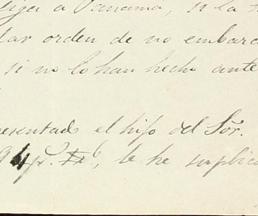 a Panama, si la
dar orden de no embarc
si no lo han hecho ante
presentado el hijo del Sor.
le he suplica